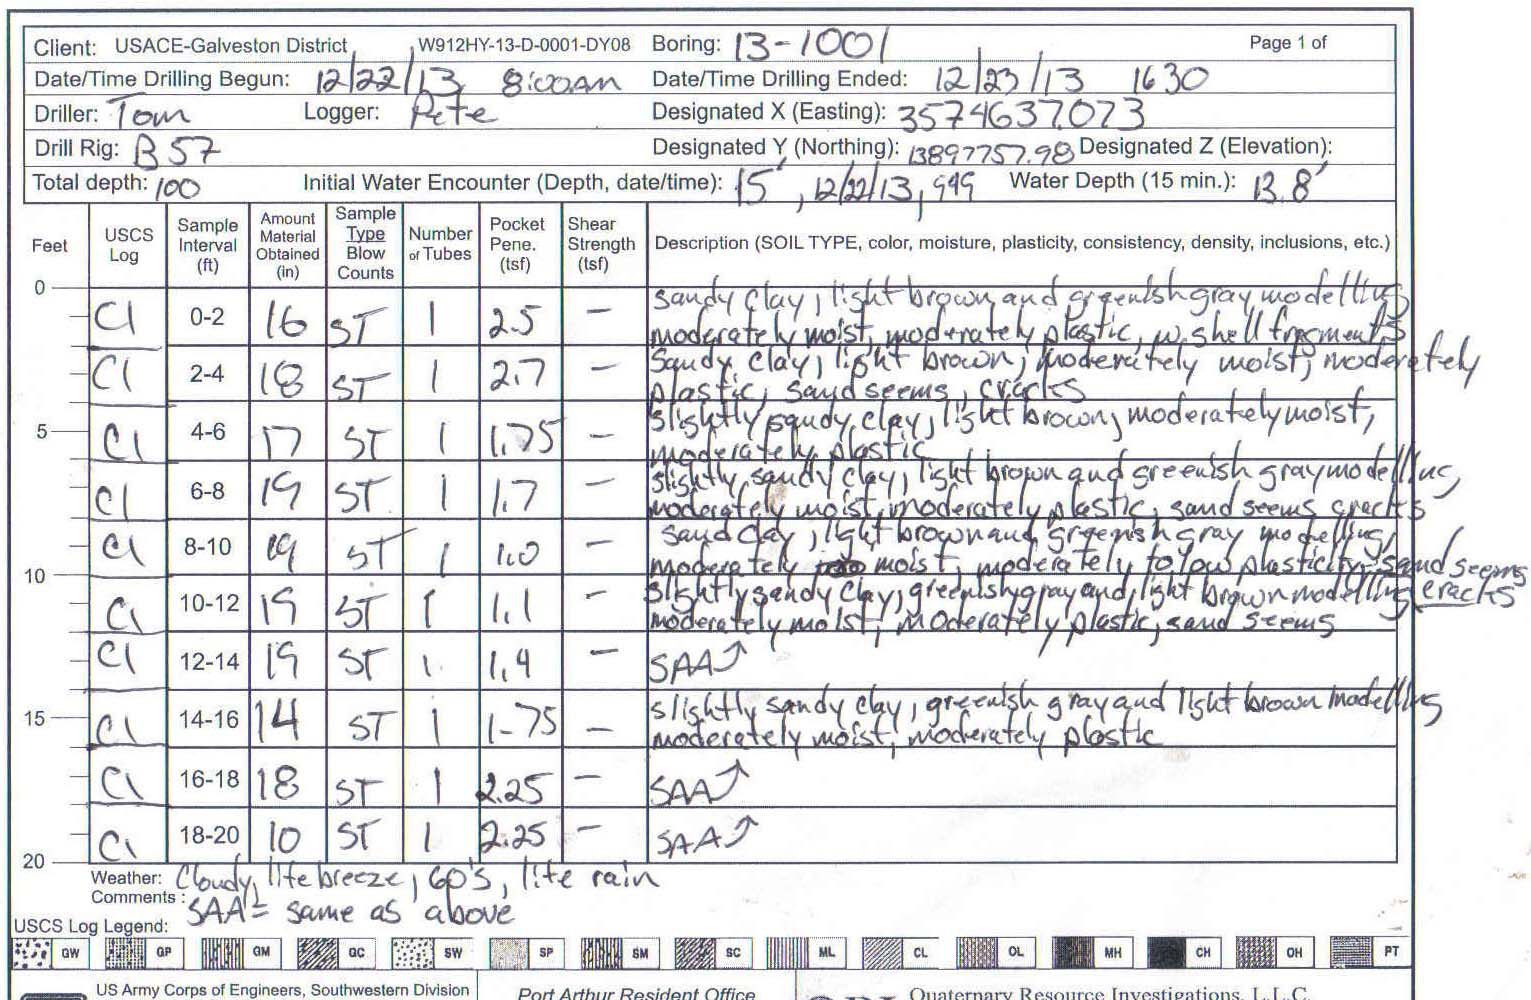 Client: USACE-Galveston District W912HY-13-D-0001-DY08 Boring: 13-1001 Page 1 of
Date/Time Drilling Begun: 12/22/13 8:00AM Date/Time Drilling Ended: 12/23/13 1630
Driller: Tom Logger: Pete Designated X (Easting): 3574637.073
Drill Rig: B57 Designated Y (Northing): 13897757.98 Designated Z (Elevation):
Total depth: 100 Initial Water Encounter (Depth, date/time): 15', 12/22/13, 949 Water Depth (15 min.): 13.8'
Feet USCS Log Sample Interval (ft) Amount Material Obtained (in) Sample Type Blow Counts Number of Tubes Pocket Pene. (tsf) Shear Strength (tsf) Description (SOIL TYPE, color, moisture, plasticity, consistency, density, inclusions, etc.)
0
Cl 0-2 16 ST 1 2.5 – sandy clay, light brown and greenish gray modelling
moderately moist, moderately plastic, w. shell fragments
Cl 2-4 18 ST 1 2.7 – Sandy clay, light brown, moderately moist, moderately
plastic, sand seems, cracks
5 Cl 4-6 17 ST 1 1.75 – slightly sandy clay, light brown, moderately moist,
moderately plastic
Cl 6-8 19 ST 1 1.7 – slightly sandy clay, light brown and greenish gray modelling,
moderately moist, moderately plastic, sand seems cracks
Cl 8-10 19 ST 1 1.0 – sand clay, light brown and greenish gray modelling,
moderately moist, moderately to low plasticity, sand seems
cracks
10
Cl 10-12 19 ST 1 1.1 – slightly sandy clay, greenish gray and light brown modelling
moderately moist, moderately plastic, sand seems
Cl 12-14 19 ST 1 1.4 – SAA↑
15 Cl 14-16 14 ST 1 1.75 – slightly sandy clay, greenish gray and light brown modelling
moderately moist, moderately plastic
Cl 16-18 18 ST 1 2.25 – SAA↑
Cl 18-20 10 ST 1 2.25 – SAA↑
20
Weather: Cloudy, lite breeze, 60's, lite rain
Comments: SAA = same as above
USCS Log Legend:
GW GP GM GC SW SP SM SC ML CL OL MH CH OH PT
US Army Corps of Engineers, Southwestern Division Port Arthur Resident Office Quaternary Resource Investigations, L.L.C.